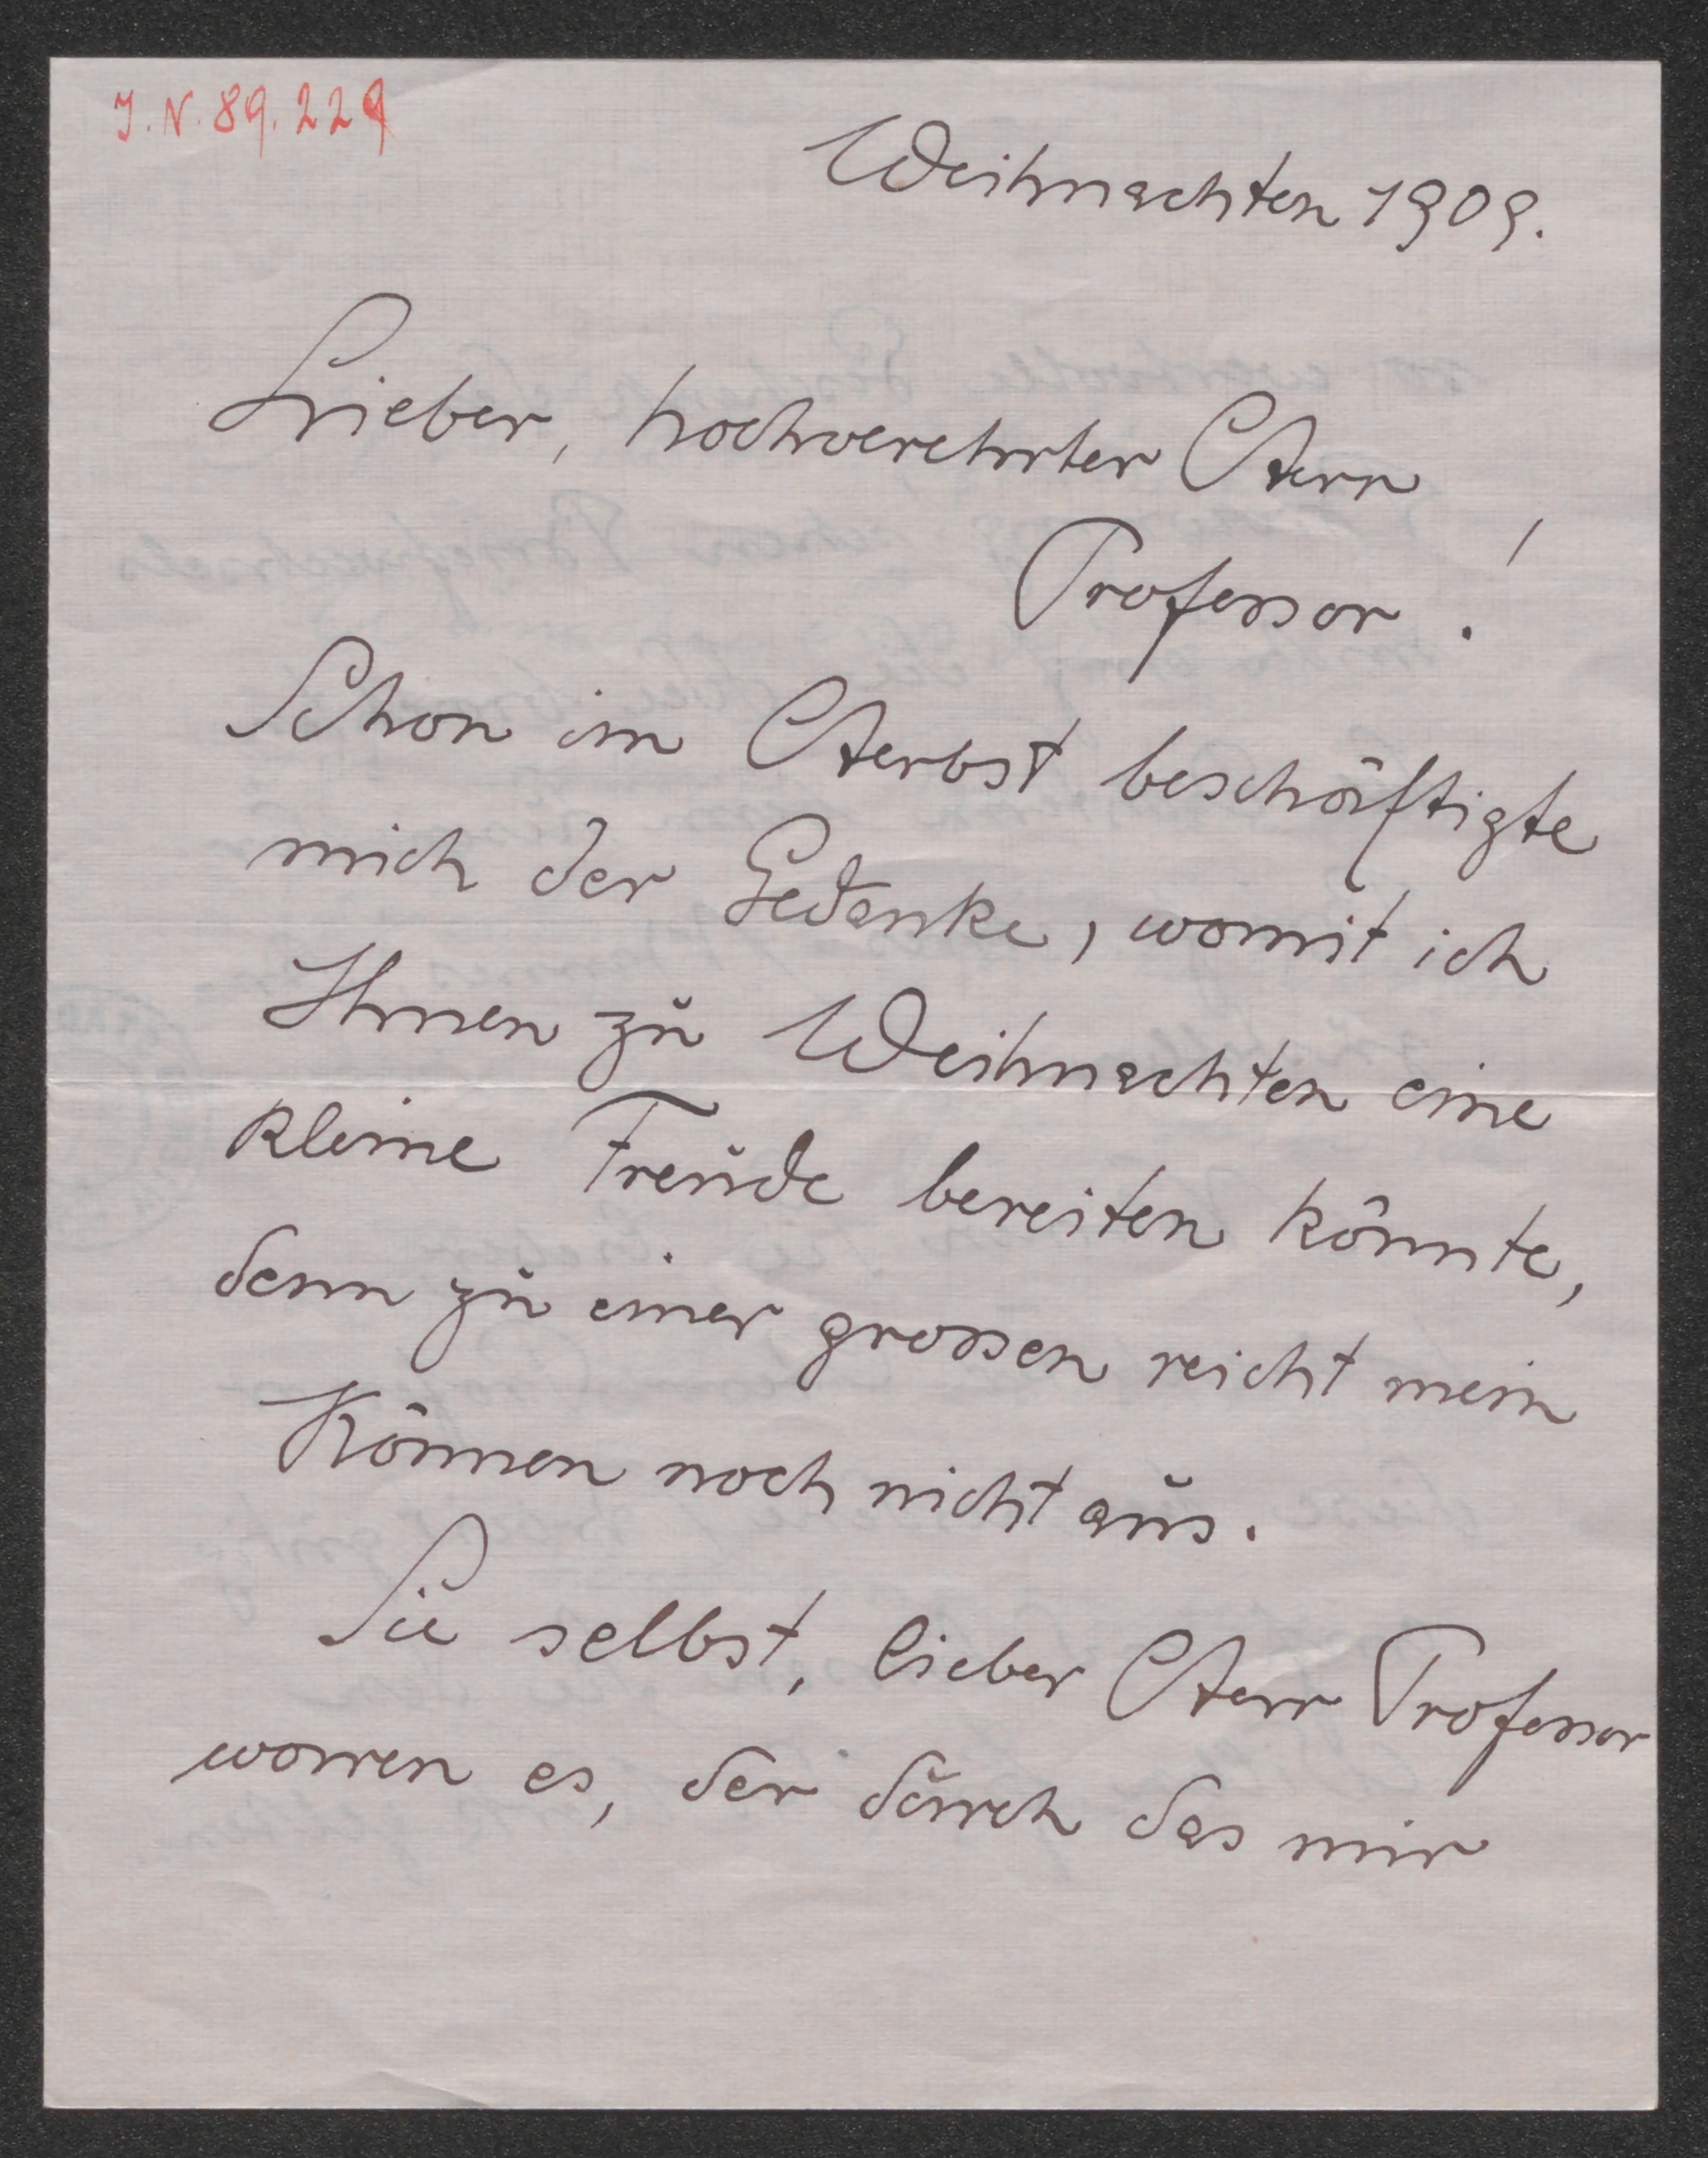 J.N. 89.229
Weihnachten 1909.
Lieber, hochverehrter Herr
Professor!
Schon im Herbst beschäftigte
mich der Gedanke, womit ich
Ihnen zu Weihnachten eine
kleine Freude bereiten könnte,
denn zu einer grossen reicht mein
Können noch nicht aus.
Sie selbst, lieber Herr Professor
waren es, der durch das mir